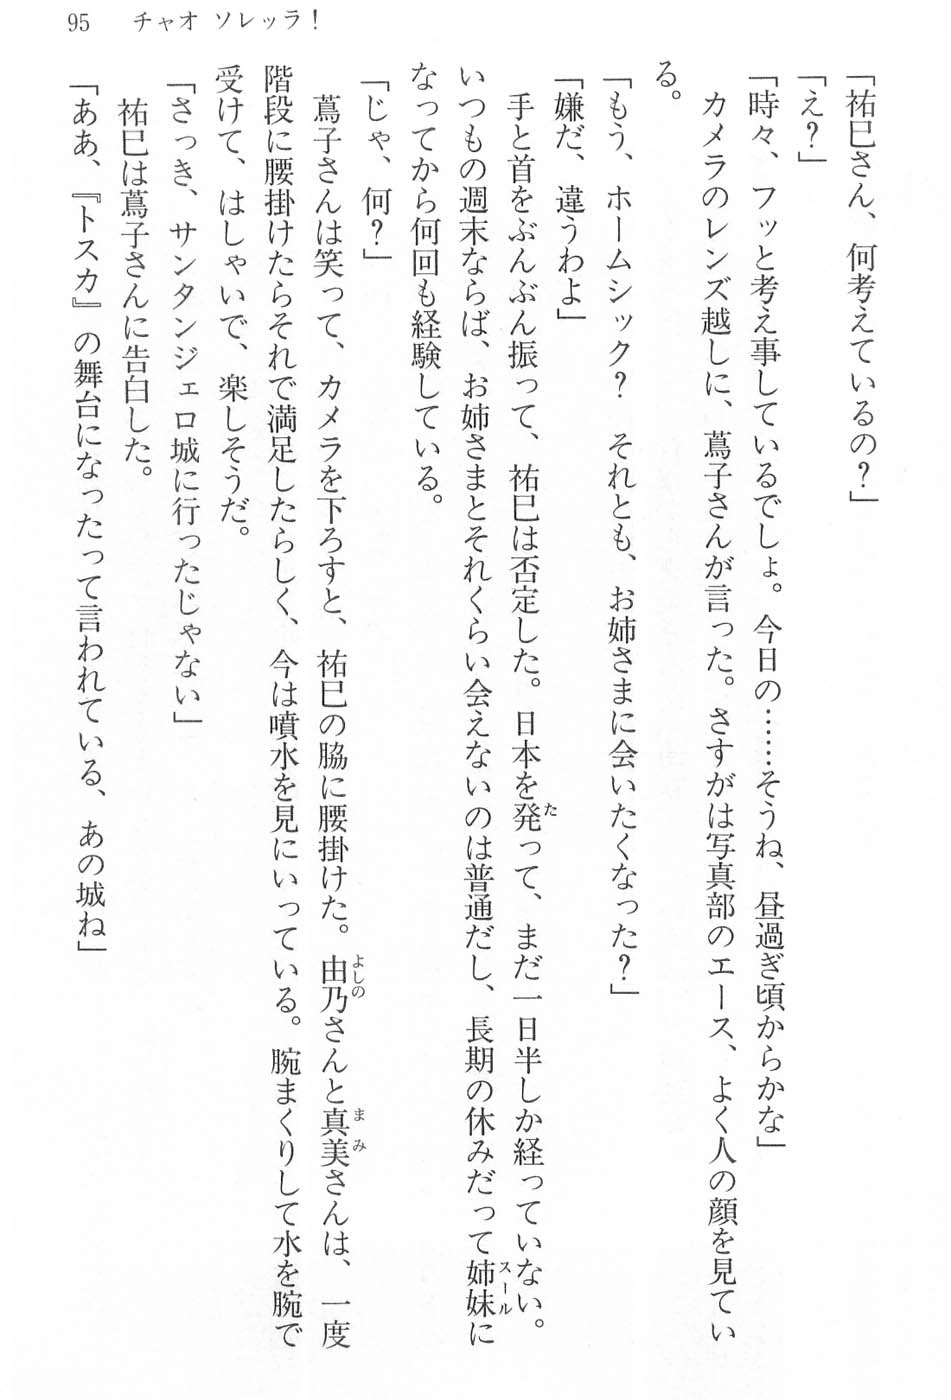 95　チャオ ソレッラ！
「祐巳さん、何考えているの？」
「え？」
「時々、フッと考え事しているでしょ。今日の……そうね、昼過ぎ頃からかな」
　カメラのレンズ越しに、蔦子さんが言った。さすがは写真部のエース、よく人の顔を見てい
る。
「もう、ホームシック？　それとも、お姉さまに会いたくなった？」
「嫌だ、違うわよ」
　手と首をぶんぶん振って、祐巳は否定した。日本を発って、まだ一日半しか経っていない。
いつもの週末ならば、お姉さまとそれくらい会えないのは普通だし、長期の休みだって姉妹に
なってから何回も経験している。
「じゃ、何？」
　蔦子さんは笑って、カメラを下ろすと、祐巳の脇に腰掛けた。由乃さんと真美さんは、一度
階段に腰掛けたらそれで満足したらしく、今は噴水を見にいっている。腕まくりして水を腕で
受けて、はしゃいで、楽しそうだ。
「さっき、サンタンジェロ城に行ったじゃない」
　祐巳は蔦子さんに告白した。
「ああ、『トスカ』の舞台になったって言われている、あの城ね」
た
スール
よしの
まみ